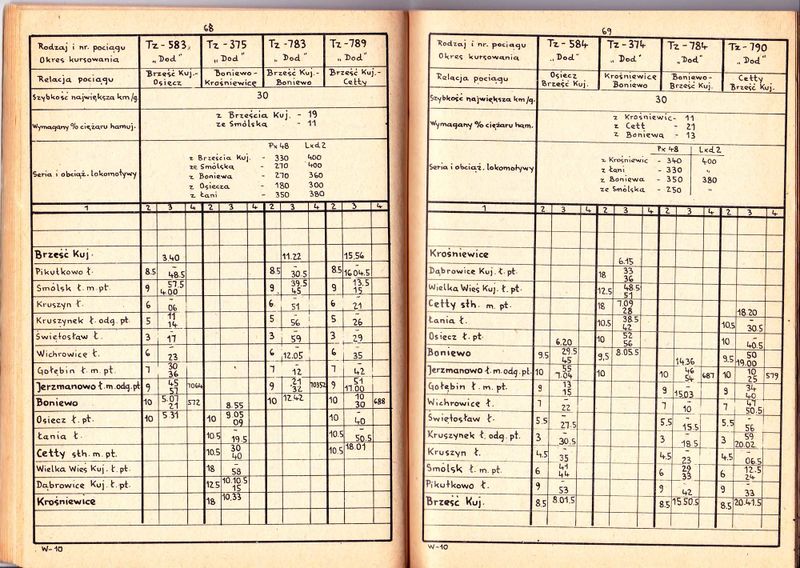 68
Rodzaj i nr. pociągu Tz-583 Tz-375 Tz-783 Tz-789
Okres kursowania „Dod" „Dod" „Dod" „Dod"
Relacja pociągu Brześć Kuj.- Osiecz Boniewo- Krośniewice Brześć Kuj.- Boniewo Brześć Kuj.- Cetty
Szybkość największa km/g. 30
Wymagany % ciężaru hamuj. z Brześcia Kuj. - 19
ze Smólska - 11
Px48 Lxd2
z Brześcia Kuj. - 330 400
ze Smólska - 270 400
Seria i obciąż. lokomotywy z Boniewa - 270 360
z Osiecza - 180 300
z Łani - 350 380
1 2 3 4 2 3 4 2 3 4 2 3 4
Brześć Kuj. 3.40 11.22 15.56
Pikutkowo Ł. 8.5 - 48.5 8.5 - 30.5 8.5 - 1604.5
Smólsk ł. m. pt. 9 57.5 4.00 9 39.5 45 9 13.5 15
Kruszyn Ł. 6 - 06 6 - 51 6 - 21
Kruszynek ł. odg. pt. 5 11 14 5 - 56 5 - 26
Świętosław Ł. 3 - 17 3 - 59 3 - 29
Wichrowice Ł. 6 - 23 6 - 12.05 6 - 35
Gołębin ł. m. pt. 7 30 36 7 - 12 7 - 42
Jerzmanowo ł. m. odg. pt. 9 45 57 7064 9 21 32 70352 9 51 17.00
Boniewo 10 5.07 21 572 8.55 10 12.42 10 10 30 688
Osiecz ł. pt. 10 5.31 10 9.05 09 10 - 40
Łania ł. 10.5 - 19.5 10.5 - 50.5
Cetty sth. m. pt. 10.5 30 40 10.5 18.01
Wielka Wieś Kuj. ł. pt. 18 - 58
Dąbrowice Kuj. ł. pt. 12.5 10.10.5 15
Krośniewice 18 10.33
W-10
69
Rodzaj i nr. pociągu Tz-584 Tz-374 Tz-784 Tz-790
Okres kursowania „Dod" „Dod" „Dod" „Dod"
Relacja pociągu Osiecz Brześć Kuj. Krośniewice Boniewo Boniewo- Brześć Kuj. Cetty Brześć Kuj.
Szybkość największa km/g. 30
Wymagany % ciężaru ham. z Krośniewic- 11
z Cett - 21
z Boniewa - 13
Px48 Lxd2
z Krośniewic - 340 400
z Łani - 330 "
Seria i obciąż. lokomotywy z Boniewa - 350 380
ze Smólska - 250 "
1 2 3 4 2 3 4 2 3 4 2 3 4
Krośniewice 6.15
Dąbrowice Kuj. ł. pt. 18 33 36
Wielka Wieś Kuj. ł. pt. 12.5 48.5 51
Cetty sth. m. pt. 18 7.09 28 18.20
Łania ł. 10.5 38.5 42 10.5 - 30.5
Osiecz ł. pt. 6.20 10 52 56 10 - 40.5
Boniewo 9.5 29.5 45 9,5 8.05.5 14.36 9.5 50 19.00
Jerzmanowo ł. m. odg. pt. 10 55 7.04 10 10 46 54 687 10 10 25 579
Gołębin ł. m. pt. 9 13 15 9 - 15.03 9 34 40
Wichrowice Ł. 7 - 22 7 - 10 7 47 50.5
Świętosław Ł. 5.5 - 27.5 5.5 - 15.5 5.5 - 56
Kruszynek ł. odg. pt. 3 - 30.5 3 - 18.5 3 59 20.02
Kruszyn Ł. 4.5 - 35 4.5 - 23 4.5 - 06.5
Smólsk ł. m. pt. 6 41 44 6 29 33 6 12.5 24
Pikutkowo Ł. 9 - 53 9 - 42 9 - 33
Brześć Kuj. 8.5 8.01.5 8.5 15.50.5 8.5 20.41.5
W-10